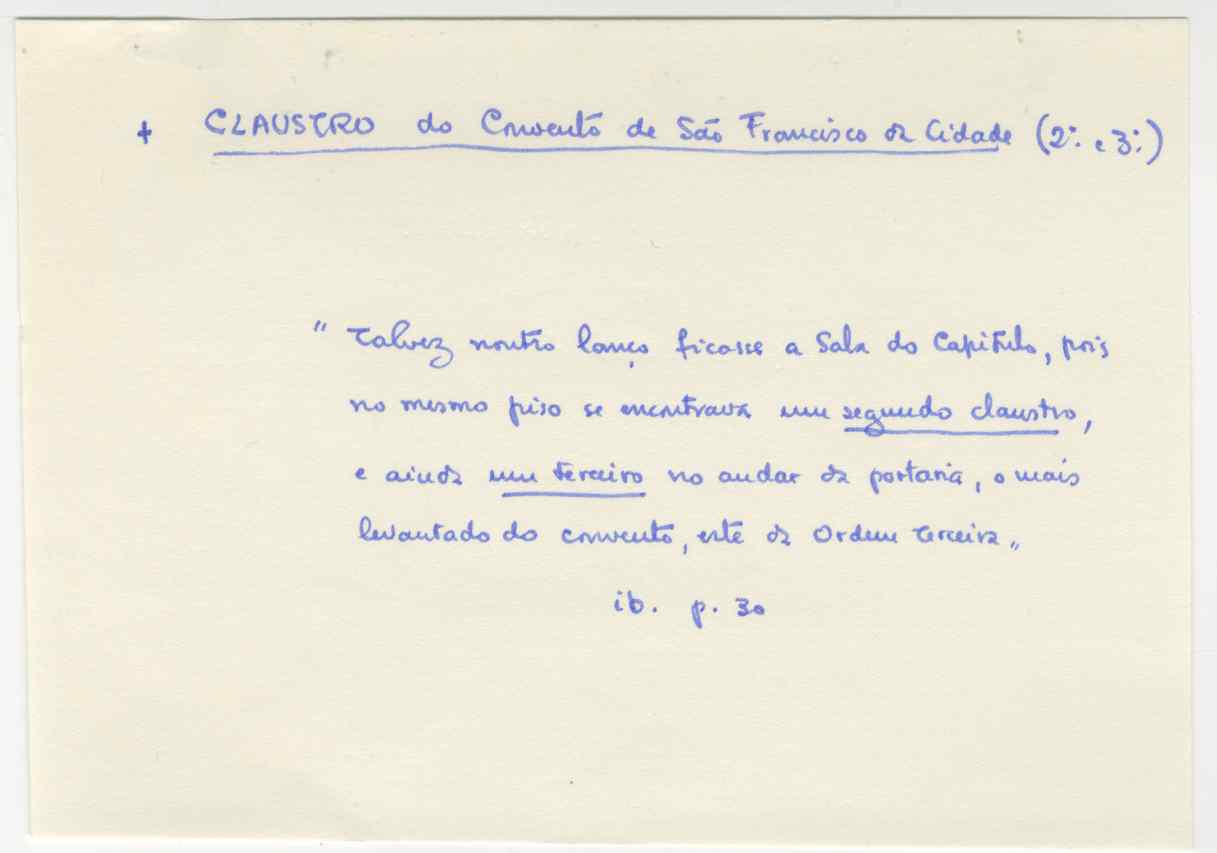 + CLAUSTRO do Convento de São Francisco da Cidade (2º. e 3º.)
" Talvez noutro lanço ficasse a Sala do Capítulo, pois
no mesmo piso se encontrava um segundo claustro,
e ainda um terceiro no andar da portaria, o mais
levantado do convento, este da Ordem Terceira „
ib. p. 30